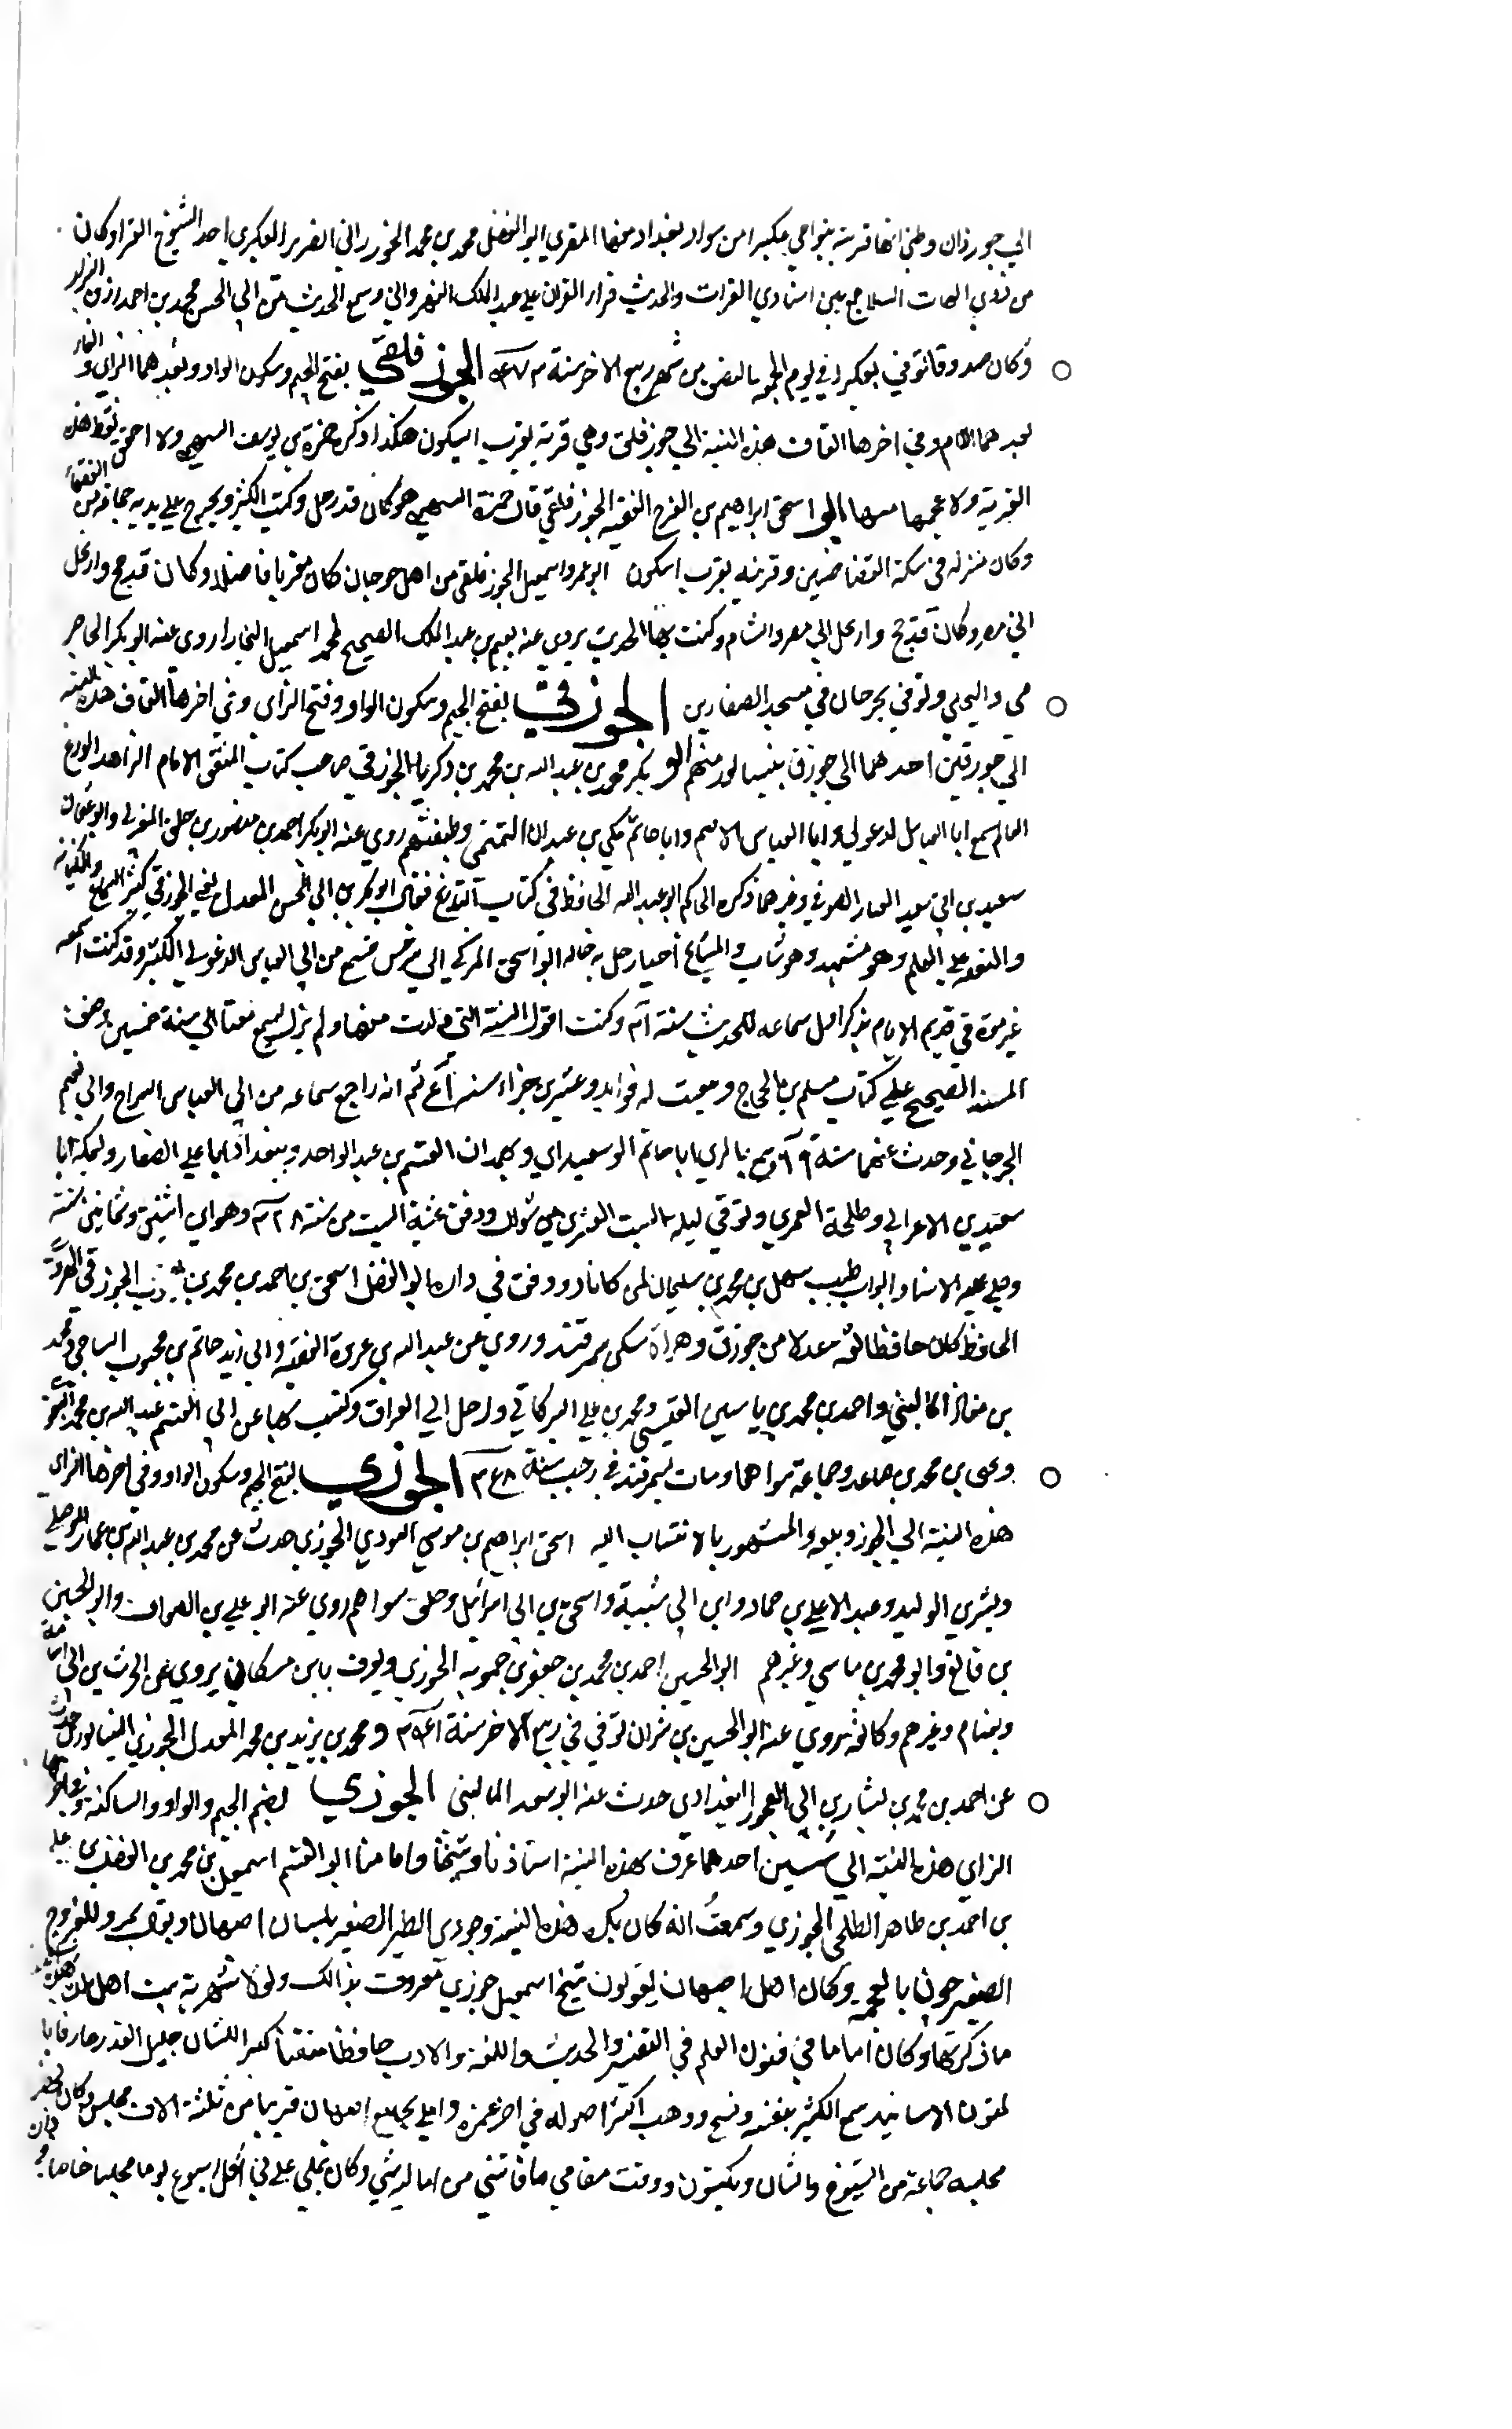 الي جورذان وظني انها قرية بنواحي عكبرا من سواد بغداد منها المقري ابو الفضل محمد بن محمد الجوزراني الضرير العكبري احد الشيوخ القرا وكان
من ذوي الهيات السلاح بين اسنادي القرات والحديث قرا القران علي عبد الملك النهرواني وسمع الحديث من ابي الحسن محمد بن احمد ازق البزاز
وكان صدوقا توفي بعكبرا في يوم الجمعة بالنصف من شهر ربيع الاخر سنة الجوزفلقي بفتح الجيم وسكون الواو وبعدهما الزاي والفا
بعدهما اللام وفي اخرها القاف هذه النسبة الي جوزفلق وهي قرية بقرب ابسكون هكذا ذكره حمزة بن يوسف السهمي ولا احق نقط هذه
القرية ولا عجمها منها ابو اسحق ابراهيم بن الفرج الفقيه الجوزفلقي قال حمزة السهمي هو كان قد رحل وكتب الكثير ويخرج علي يديه جماعة من الفقها
وكان منزله في سكة القفاضيين وقريته بقرب ابسكون ابو عمرو اسمعيل الجوزفلقي من اهل جرجان كان مقريا فاضلا وكان قد حج وارتحل
الي مصر وكان قد حج وارتحل الي مصر والشام وكتب بها الحديث يروي عنه نعيم بن عبد الملك الصحيح لمحمد اسمعيل البخارا روي عنه ابو بكر الجاجر
مي والبجلي وتوفي بجرجان في مسجد الصفارين الجوزقي بفتح الجيم وسكون الواو وفتح الزاي وفي اخرها القاف هذه النسبة
الي جوزقين احدهما الي جوزق بنيسابور منهم ابو بكر محمد بن عبد الله بن محمد بن زكريا الجوزقي صاحب كتاب المتفق الامام الزاهد الورع
العالم سمع ابا العباس الدغولي وابا العباس الاصم وابا حاتم مكي بن عبدان التميمي وطبقتهم روي عنه ابو بكر احمد بن منصور بن خلف المغربي وابو عثمان
سعيد بن ابي سعيد العيار الصوفي وغيرهما ذكره الحاكم ابو عبد الله الحافظ في كتاب التاريخ فقال ابو بكر بن ابي الحسن المعدل يعني الجوزقي كثير السماع والكتابة
والتفقه علي العلم وهو مشهد وهو شاب والمشايخ احيا رحل به خاله ابو اسحق المزكي الي سرخس فسمع من ابي العباس الدغولي الكثير وقد كنت اسمعه
غير مرة في قديم الايام يذكر اول سماعه للحديث سنة وكنت اقول السنة التي ولدت منها ولم يزل يسمع معنا الي سنة خمسين وصنف
المسند الصحيح علي كتاب مسلم بن الحجاج وسمعت له فوايد وعشرين جزاء سنة ثم انه راجع سماعه من ابي العباس السراج وابي نعيم
الجرجاني وحدث عنهما سنة وسمع بالري ابا حاتم الوسعيدي وبهمدان القسم بن عبد الواحد وببغداد ابا علي الصفار وبمكة ابا
سعيد بن الاعرابي وطلحة العمري وتوفي ليلة السبت العشرين من شوال ودفن عشية السبت من سنة وهو ابن اثنتين وثمانين سنة
وصلي عليه الاستاد ابو الطيب سهل بن محمد بن سليمان ودفن في داره ابو الفضل اسحق بن احمد بن محمد بن الجوزقي الهروي
الحافظ كان حافظا ثقة معدلا من جوزق وهراة سكن سمرقند وروي عن عبد الله بن عروة الفقيه وابي زيد حاتم بن محبوب السامي ومحمد
بن معاذ الماليني واحمد بن محمد بن ياسين القيسي ومحمد بن علي البركاني ورحل الي العراق وكتب بها عن ابي القسم عبد الله بن محمد البغوي
ويحيى بن محمد بن صاعد وجماعة سواهما ومات بسمرقند في رجب سنة الجوزي بفتح الجيم وسكون الواو وفي اخرها الزاي
هذه النسبة الي الجوز وبيعه والمشهور بالانتساب اليه اسحق ابراهيم بن موسي التوذي الجوزي حدث عن محمد بن عبد الله بن عمار الموصلي
وبشر بن الوليد وعبد الاعلي بن حماد وابن ابي شيبة واسحق بن ابي اسرائيل وخلق سواهم روي عنه ابو علي بن الصواف وابو الحسين
بن قانع وابو محمد بن ماسي وغيرهم ابو الحسين احمد بن محمد بن جعفر بن حمويه الجوزي ويعرف بابن مسكان يروي عن الحرث بن ابي اسامة
وتمتام وغيرهم وكان ثقة روي عنه ابو الحسين بن بشران توفي في ربيع الاخر سنة ومحمد بن يزيد بن محمد المعدل الجوزي النيسابوري حدث
عن احمد بن محمد بن بشار بن ابي العجوز البغدادي حدث عنه ابو سعد الماليني الجوزي بضم الجيم والواو الساكنة وفي اخرها
الزاي هذه النسبة الي شيين احدهما عرف بهذه النسبة استاذنا وشيخنا وامامنا ابو القسم اسمعيل بن محمد بن الفضل بن علي
بن احمد بن طاهر الطلحي الجوزي وسمعت انه كان يكره هذه النسبة وجوزي الطير الصغير بلسان اصبهان ويقال بمرو للفروج
الصغير جوزه بالعجمية وكان اهل اصبهان يقولون شيخ اسمعيل جوزي معروف بذالك ولولا شهرته بين اهل بلده بهذه
ما ذكرتها وكان اماما في فنون العلم في التفسير والحديث واللغة والادب حافظا متقنا كبير الشان جليل القدر عارفا با
لمتون الاسانيد سمع الكثير بنفسه ونسخ ووهب اكثر اصوله في اخر عمره واملي بجامع اصبهان قريبا من ثلثة الاف مجلس وكان يحضر
مجلسه جماعة من الشيوخ والشبان ويكتبون ووقت مقامي ما فاتني من اماليه شي وكان يملي علي في كل اسبوع يوما مجلسا خاصا